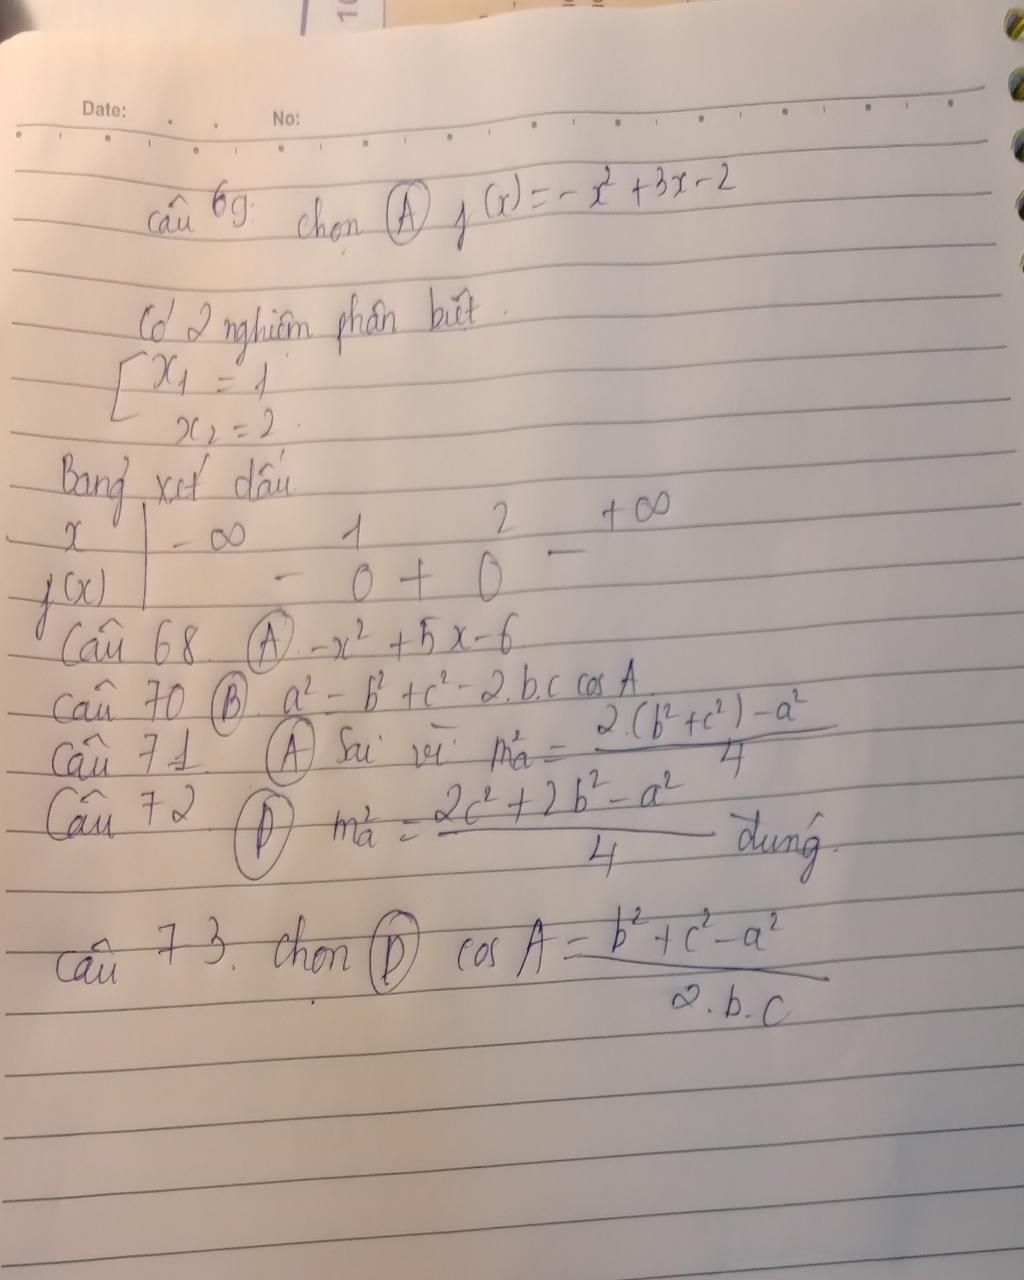 10
Date: No:
Câu 69: chọn (A) f(x) = -x² + 3x - 2
Có 2 nghiệm phân biệt.
[ x₁ = 1
x₂ = 2.
Bảng xét dấu
x | -∞ 1 2 +∞
f(x) | - 0 + 0 -
Câu 68. (A) -x² + 5x - 6
Câu 70 (B) a² - b² + c² - 2.b.c cos A
Câu 71. (A) Sai vì m²a = 2.(b² + c²) - a² / 4
Câu 72 (D) m²a = 2c² + 2b² - a² / 4 đúng.
Câu 73. chọn (D) cos A = b² + c² - a² / 2.b.c